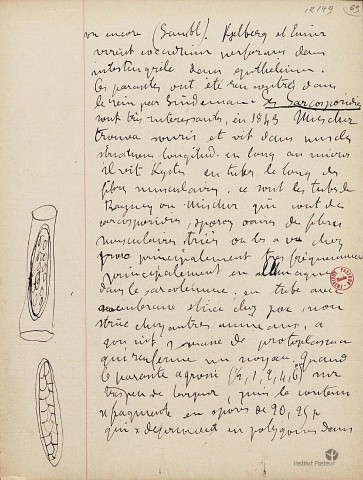 12149
69
ou encore (Sambl). Kjelberg et Eimer
virent coccidium perforans dans
intestin grêle dans epithelium.
Ces parasites ont été rencontrés dans
le rein par Lindemann. Les Sarcosporidies
sont très intéressants, en 1843 Miescher
trouva souris et vit dans muscles
striations longitud. en long au micros
il vit Kystes en tubes le long des
fibres musculaires. ce sont les tubes de
Rainey ou Miescher qui sont des
sarcosporidies, sporozoaires de fibres
musculaires striées on les a vu chez
porc principalement très fréquemment
principalement en Allemagne
dans le sarcolemme. en tube avec
membrane striée chez porc, non
striée chez autres animaux, a
qui renferme un noyau. Quand
le parasite a grossi (½, 1, 2, 4, 6) sur
de largeur, puis le contenu
se fragmente en spores de 20, 25 μ
qui se déforment en polygones dans
Institut Pasteur